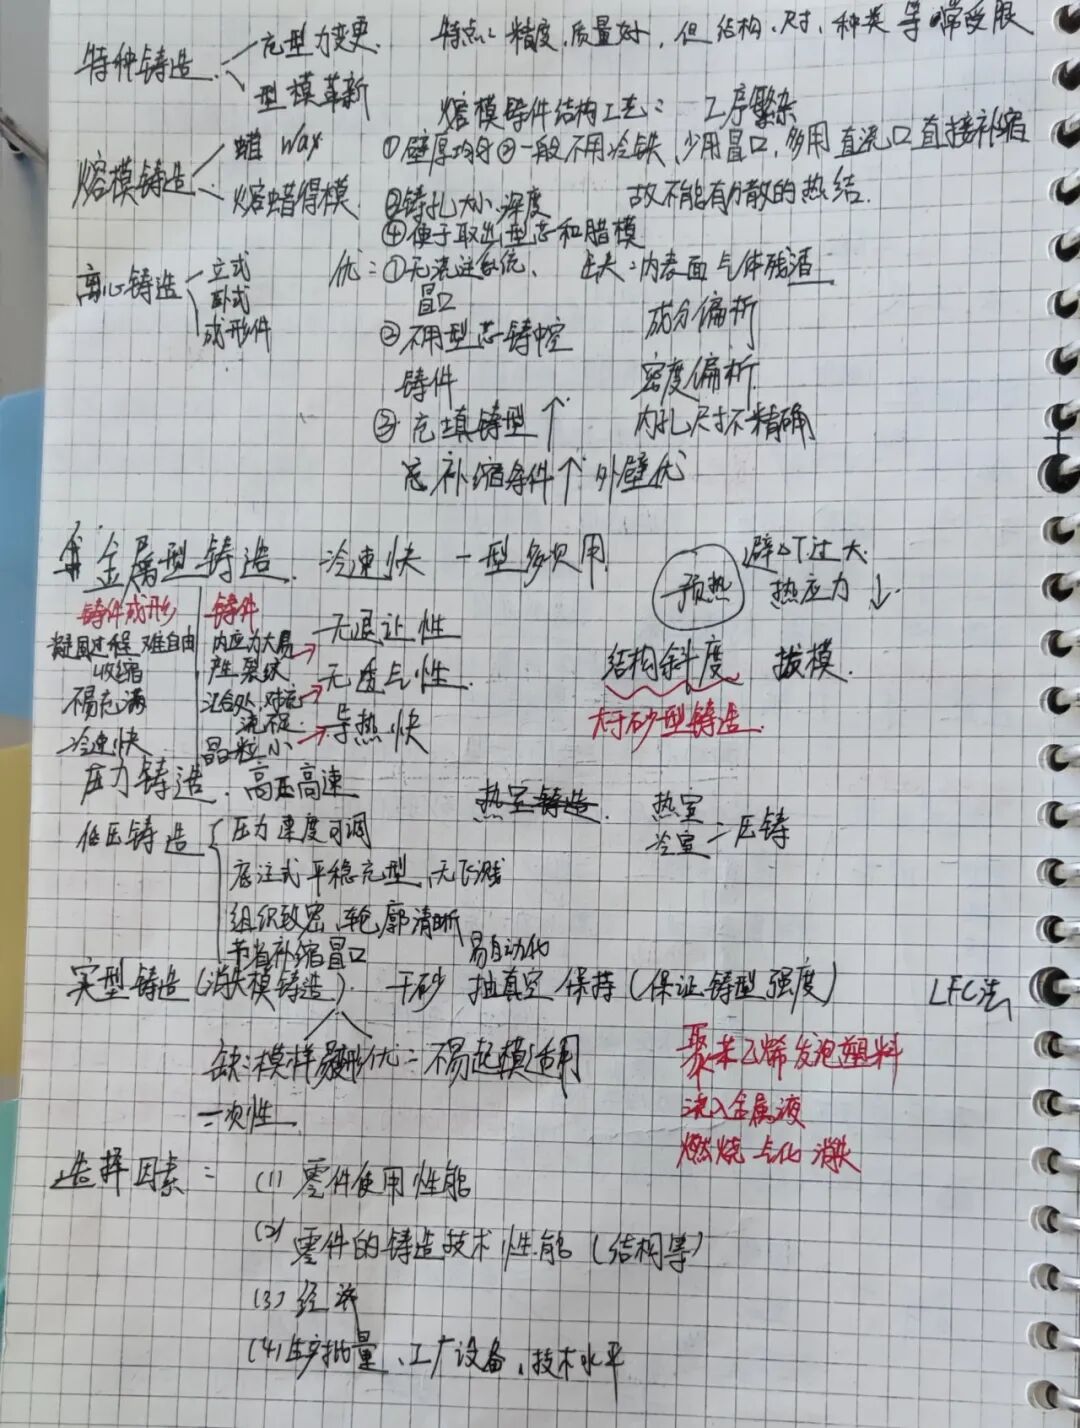 特种铸造 充型力变更 特点：精度、质量好，但结构、尺寸、种类等常受限
型模革新
熔模铸件结构工艺： 工序繁杂
熔模铸造 蜡 Wax ①壁厚均匀 ③一般不用冷铁，少用冒口，多用直浇口直接补缩
熔蜡得模 ②铸孔大小、深度 故不能有分散的热结.
④便于取出型芯和腊模
离心铸造 立式 优：①无浇注系统、 缺：内表面气体残渣
卧式 冒口
成形件 ②不用型芯铸中空 成分偏析
铸件 密度偏析
③充填铸型↑ 内孔尺寸不精确
补缩条件↑ 外壁优
金属型铸造. 冷速快 一型多次用 预热 避△T过大.
热应力↓
铸件成形 铸件
凝固过程难自由 内应力大易 无退让性
收缩 产生裂纹
不易充满 汇合处、对充 无透气性 结构斜度 拔模.
流不足. 大于砂型铸造.
冷速快 晶粒小 导热快
压力铸造. 高压高速 热室铸造. 热室
冷室 =压铸
低压铸造 压力速度可调
底注式平稳充型，无飞溅
组织致密、轮廓清晰
节省补缩冒口 易自动化
实型铸造(消失模铸造). 干砂 抽真空 保持(保证铸型强度) LFC法
缺：模样易变形 优：不易起模适用 聚苯乙烯发泡塑料
一次性 浇入金属液
燃烧 气化 消失
选择因素： (1) 零件使用性能
(2) 零件的铸造技术性能(结构等)
(3) 经济
(4) 生产批量、工厂设备、技术水平